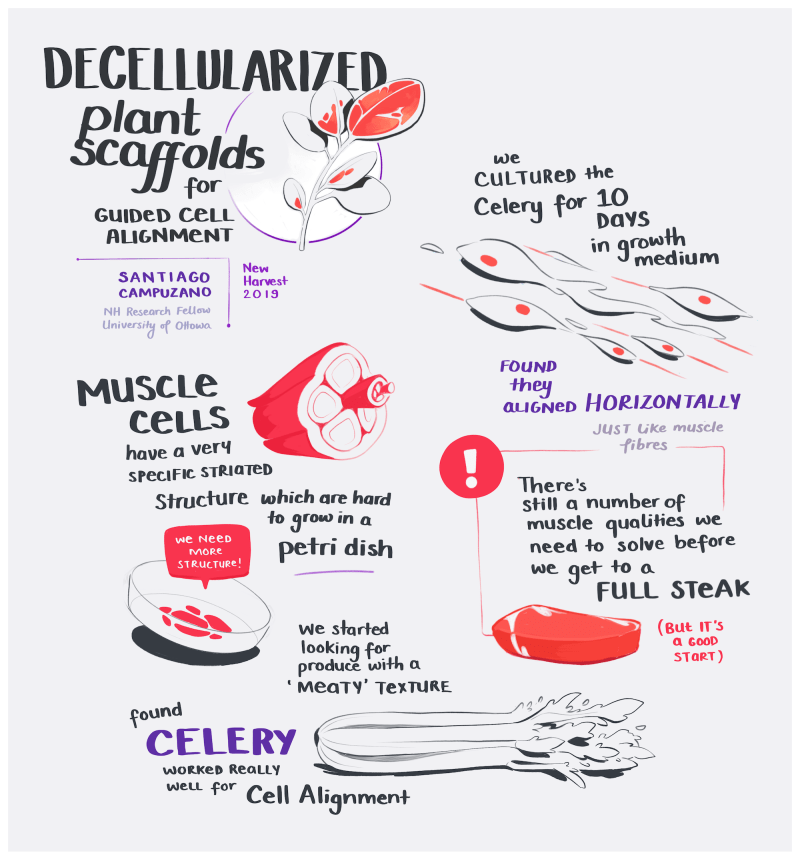 DECELLULARIZED
plant
scaffolds
for
GUIDED CELL
ALIGNMENT
SANTIAGO
CAMPUZANO
NH Research Fellow
University of Ottawa
New
Harvest
2019
MUSCLE
CELLS
have a very
SPECIFIC STRIATED
Structure which are hard
to grow in a
petri dish
WE NEED
MORE
STRUCTURE!
We started
looking for
produce with a
'MEATY' TEXTURE
found
CELERY
WORKED REALLY
WELL for Cell Alignment
we
CULTURED the
Celery for 10
DAYS
in growth
medium
FOUND
they
aLIGNED HORIZONTALLY
JUST Like muscle
fibres
!
There's
still a number of
muscle qualities we
need to solve before
we get to a
FULL STEAK
(BUT IT'S
a GOOD
START)